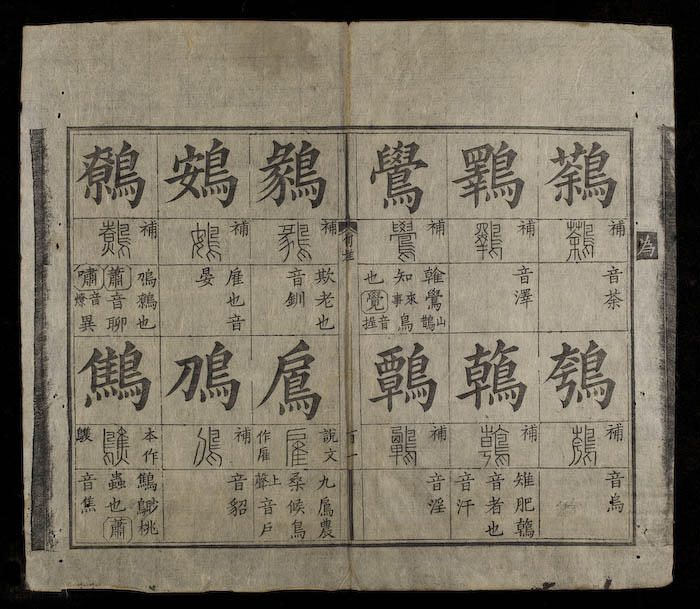 為
鷋
補
音荼
鸅
補
音澤
鷽
補
鶾鷽山鵲
知來事鳥
也覺音握
補
音烏
鶾
補
雉肥鶾
音者也
音汗
鷣
補
音淫
百一
鶨
補
欺老也
音釧
鴳
補
雇也音
晏
鷯
補
鳭鷯也
蕭音聊
嘯音燎異
鳸
說文
作雇
九鳸農
桑候鳥
上聲音戶
鳭
補
音貂
鷦
本作
鷦桃
蟲也蕭
音焦